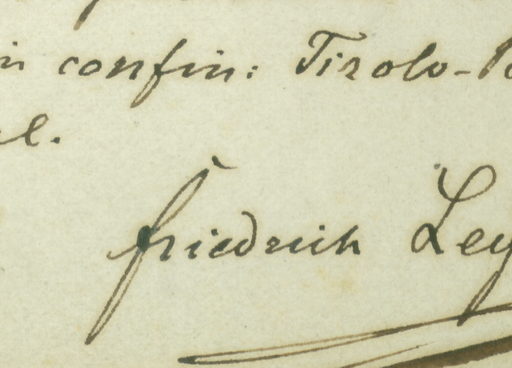 in confin: Tirolo-
Friedrich Ley